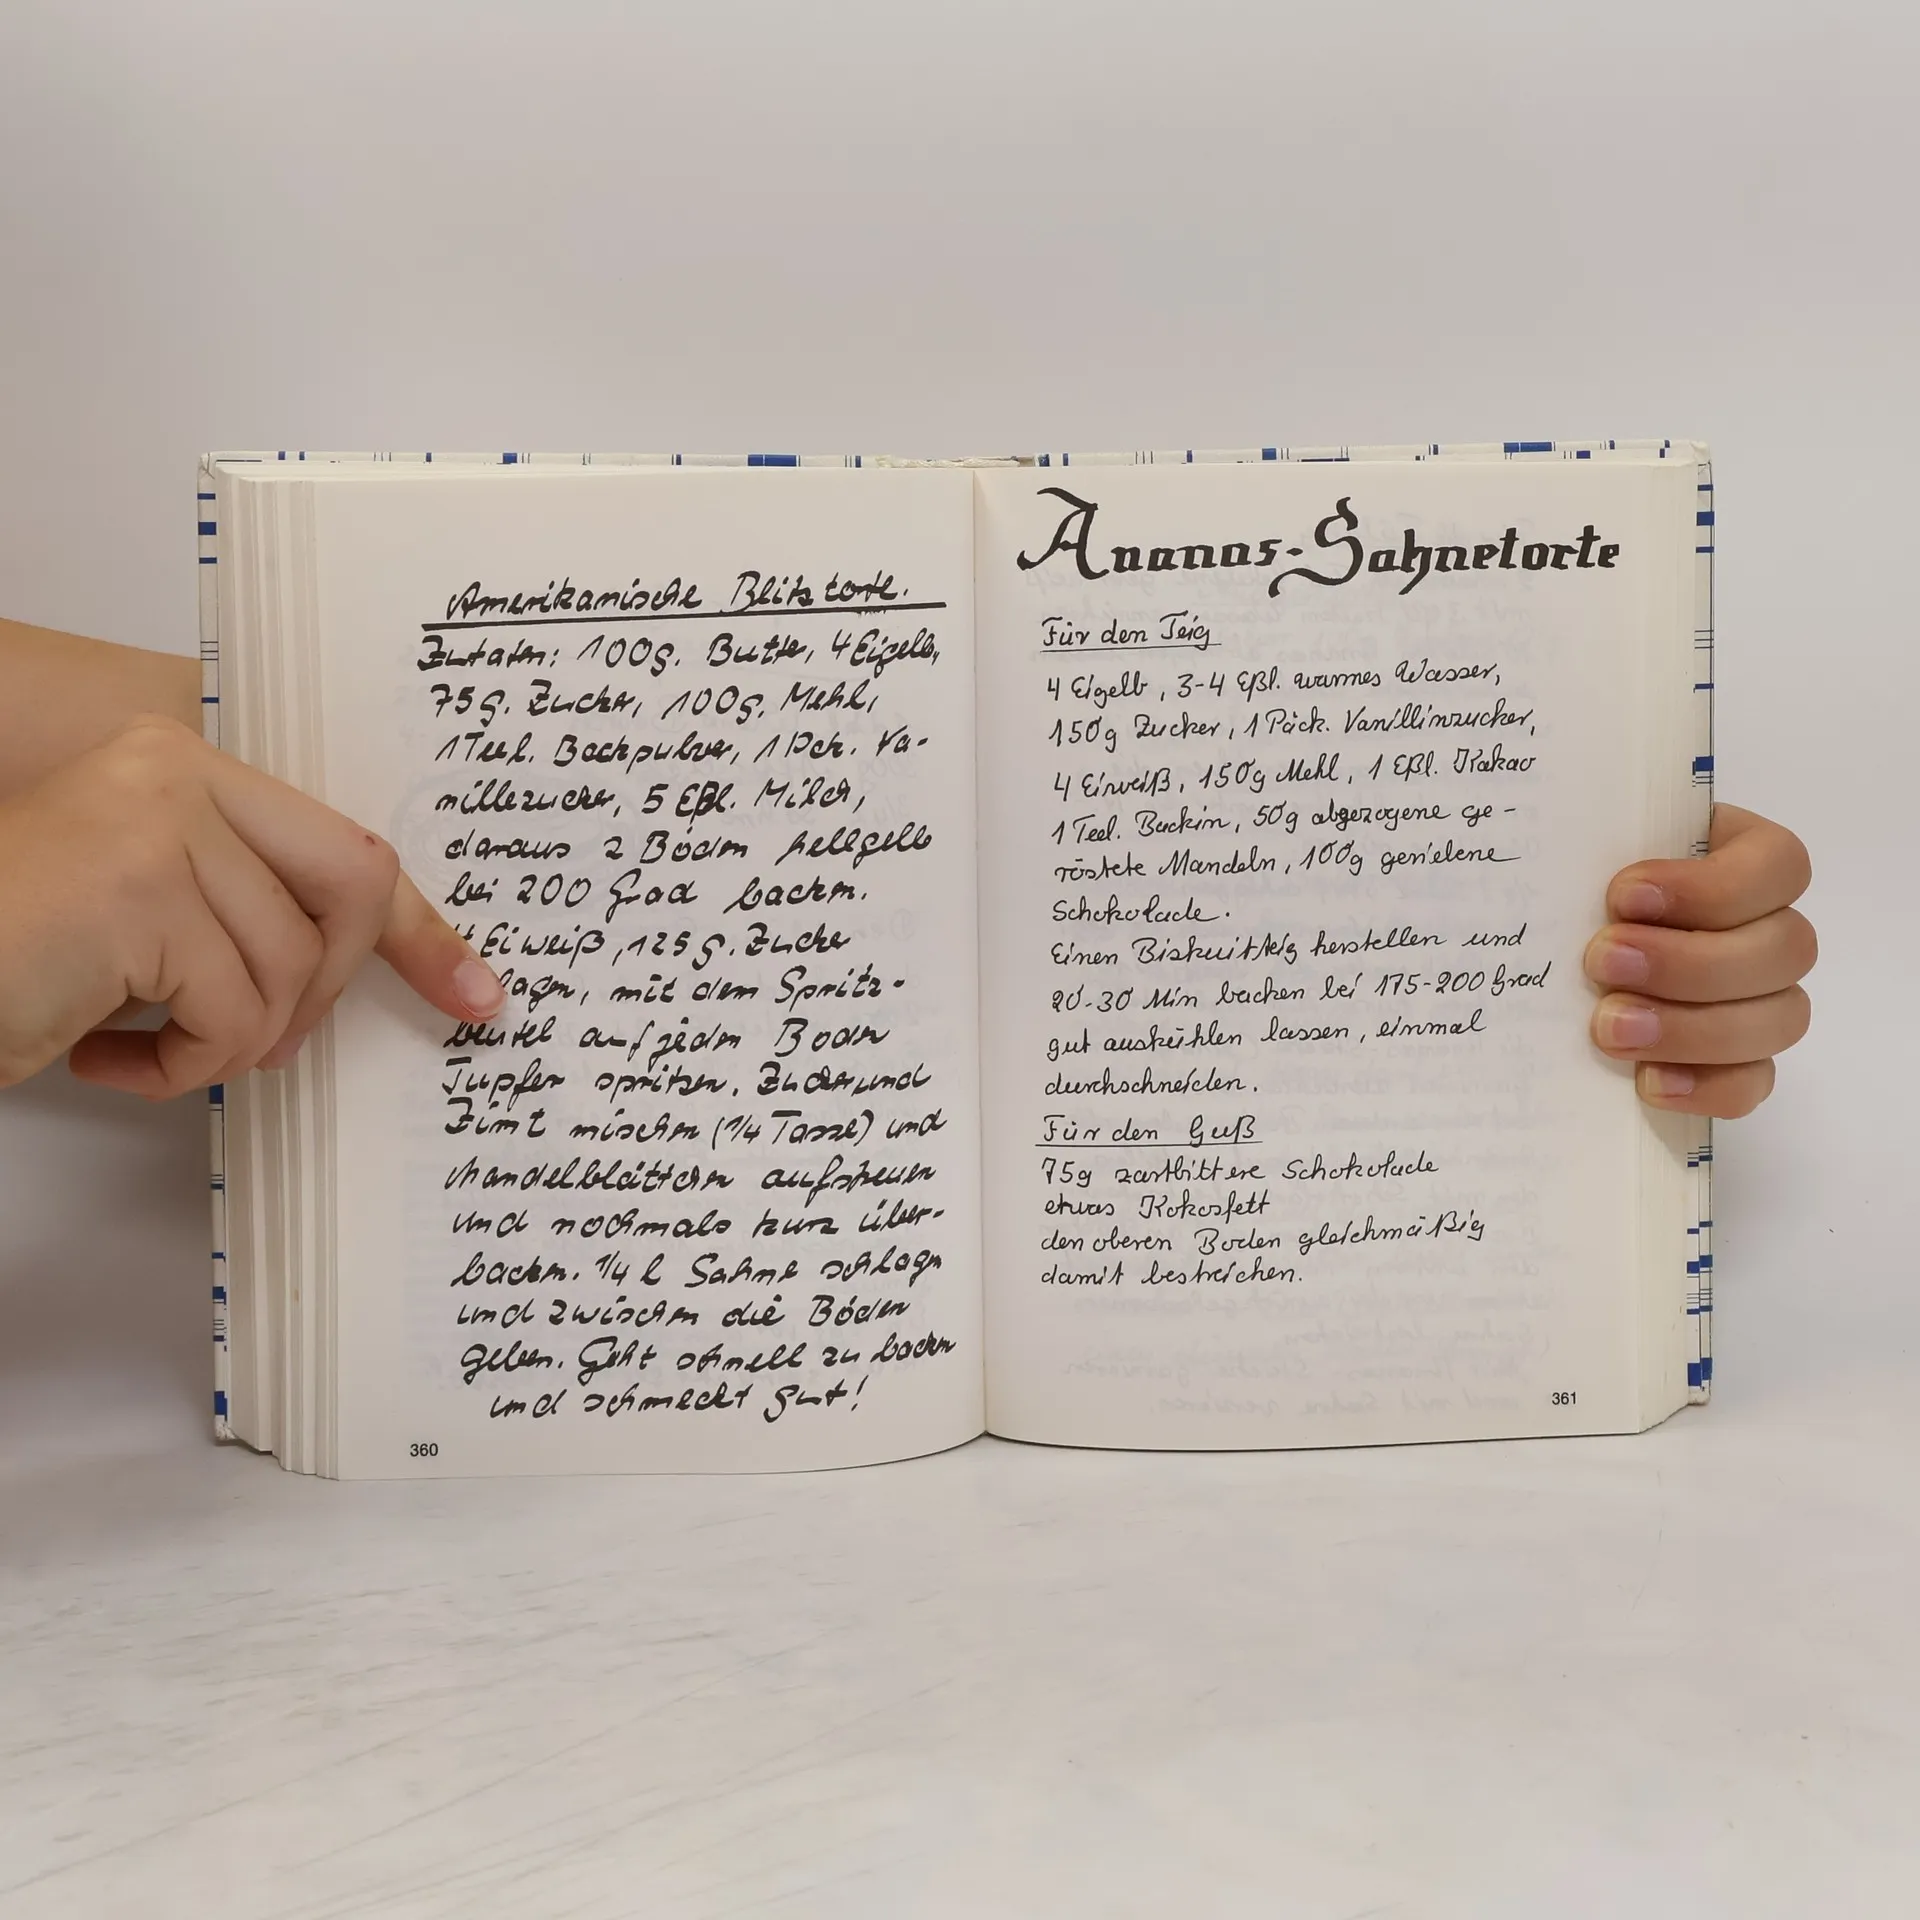 Amerikanische Blitztorte.
Zutaten: 100g. Butter, 4 Eigelb,
75g. Zucker, 100g. Mehl,
1 Teel. Backpulver, 1 Pck. Va-
nillezucker, 5 Eßl. Milch,
daraus 2 Böden hellgelb
bei 200 Grad backen.
Eiweiß, 125g. Zucker
lagen, mit dem Spritz-
beutel auf jeden Boden
Tupfer spritzen. Zucker und
Zimt mischen (1/4 Tasse) und
Mandelblättchen aufstreuen
und nochmals kurz über-
backen. 1/4 l Sahne schlagen
und zwischen die Böden
geben. Geht schnell zu backen
und schmeckt gut!
360
Ananas-Sahnetorte
Für den Teig
4 Eigelb, 3-4 Eßl. warmes Wasser,
150g Zucker, 1 Päck. Vanillinzucker,
4 Eiweiß, 150g Mehl, 1 Eßl. Kakao
1 Teel. Backin, 50g abgezogene ge-
röstete Mandeln, 100g geriebene
Schokolade.
Einen Biskuitteig herstellen und
20-30 Min backen bei 175-200 Grad
gut auskühlen lassen, einmal
durchschneiden.
Für den Guß
75g zartbittere Schokolade
etwas Kokosfett
den oberen Boden gleichmäßig
damit bestreichen.
361